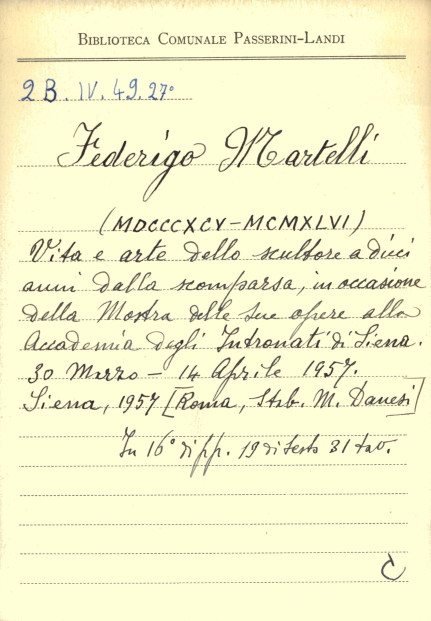 BIBLIOTECA COMUNALE PASSERINI-LANDI
2B.IV.49.27°
Federigo Martelli
(MDCCCXCV-MCMXLVI)
Vita e arte dello scultore a dieci
anni dalla scomparsa, in occasione
della Mostra delle sue opere alla
Accademia degli Intronati di Siena.
30 Marzo - 14 Aprile 1957.
Siena, 1957 [Roma, Stab. M. Danesi]
In 16° di pp. 19 di testo 31 tav.
C